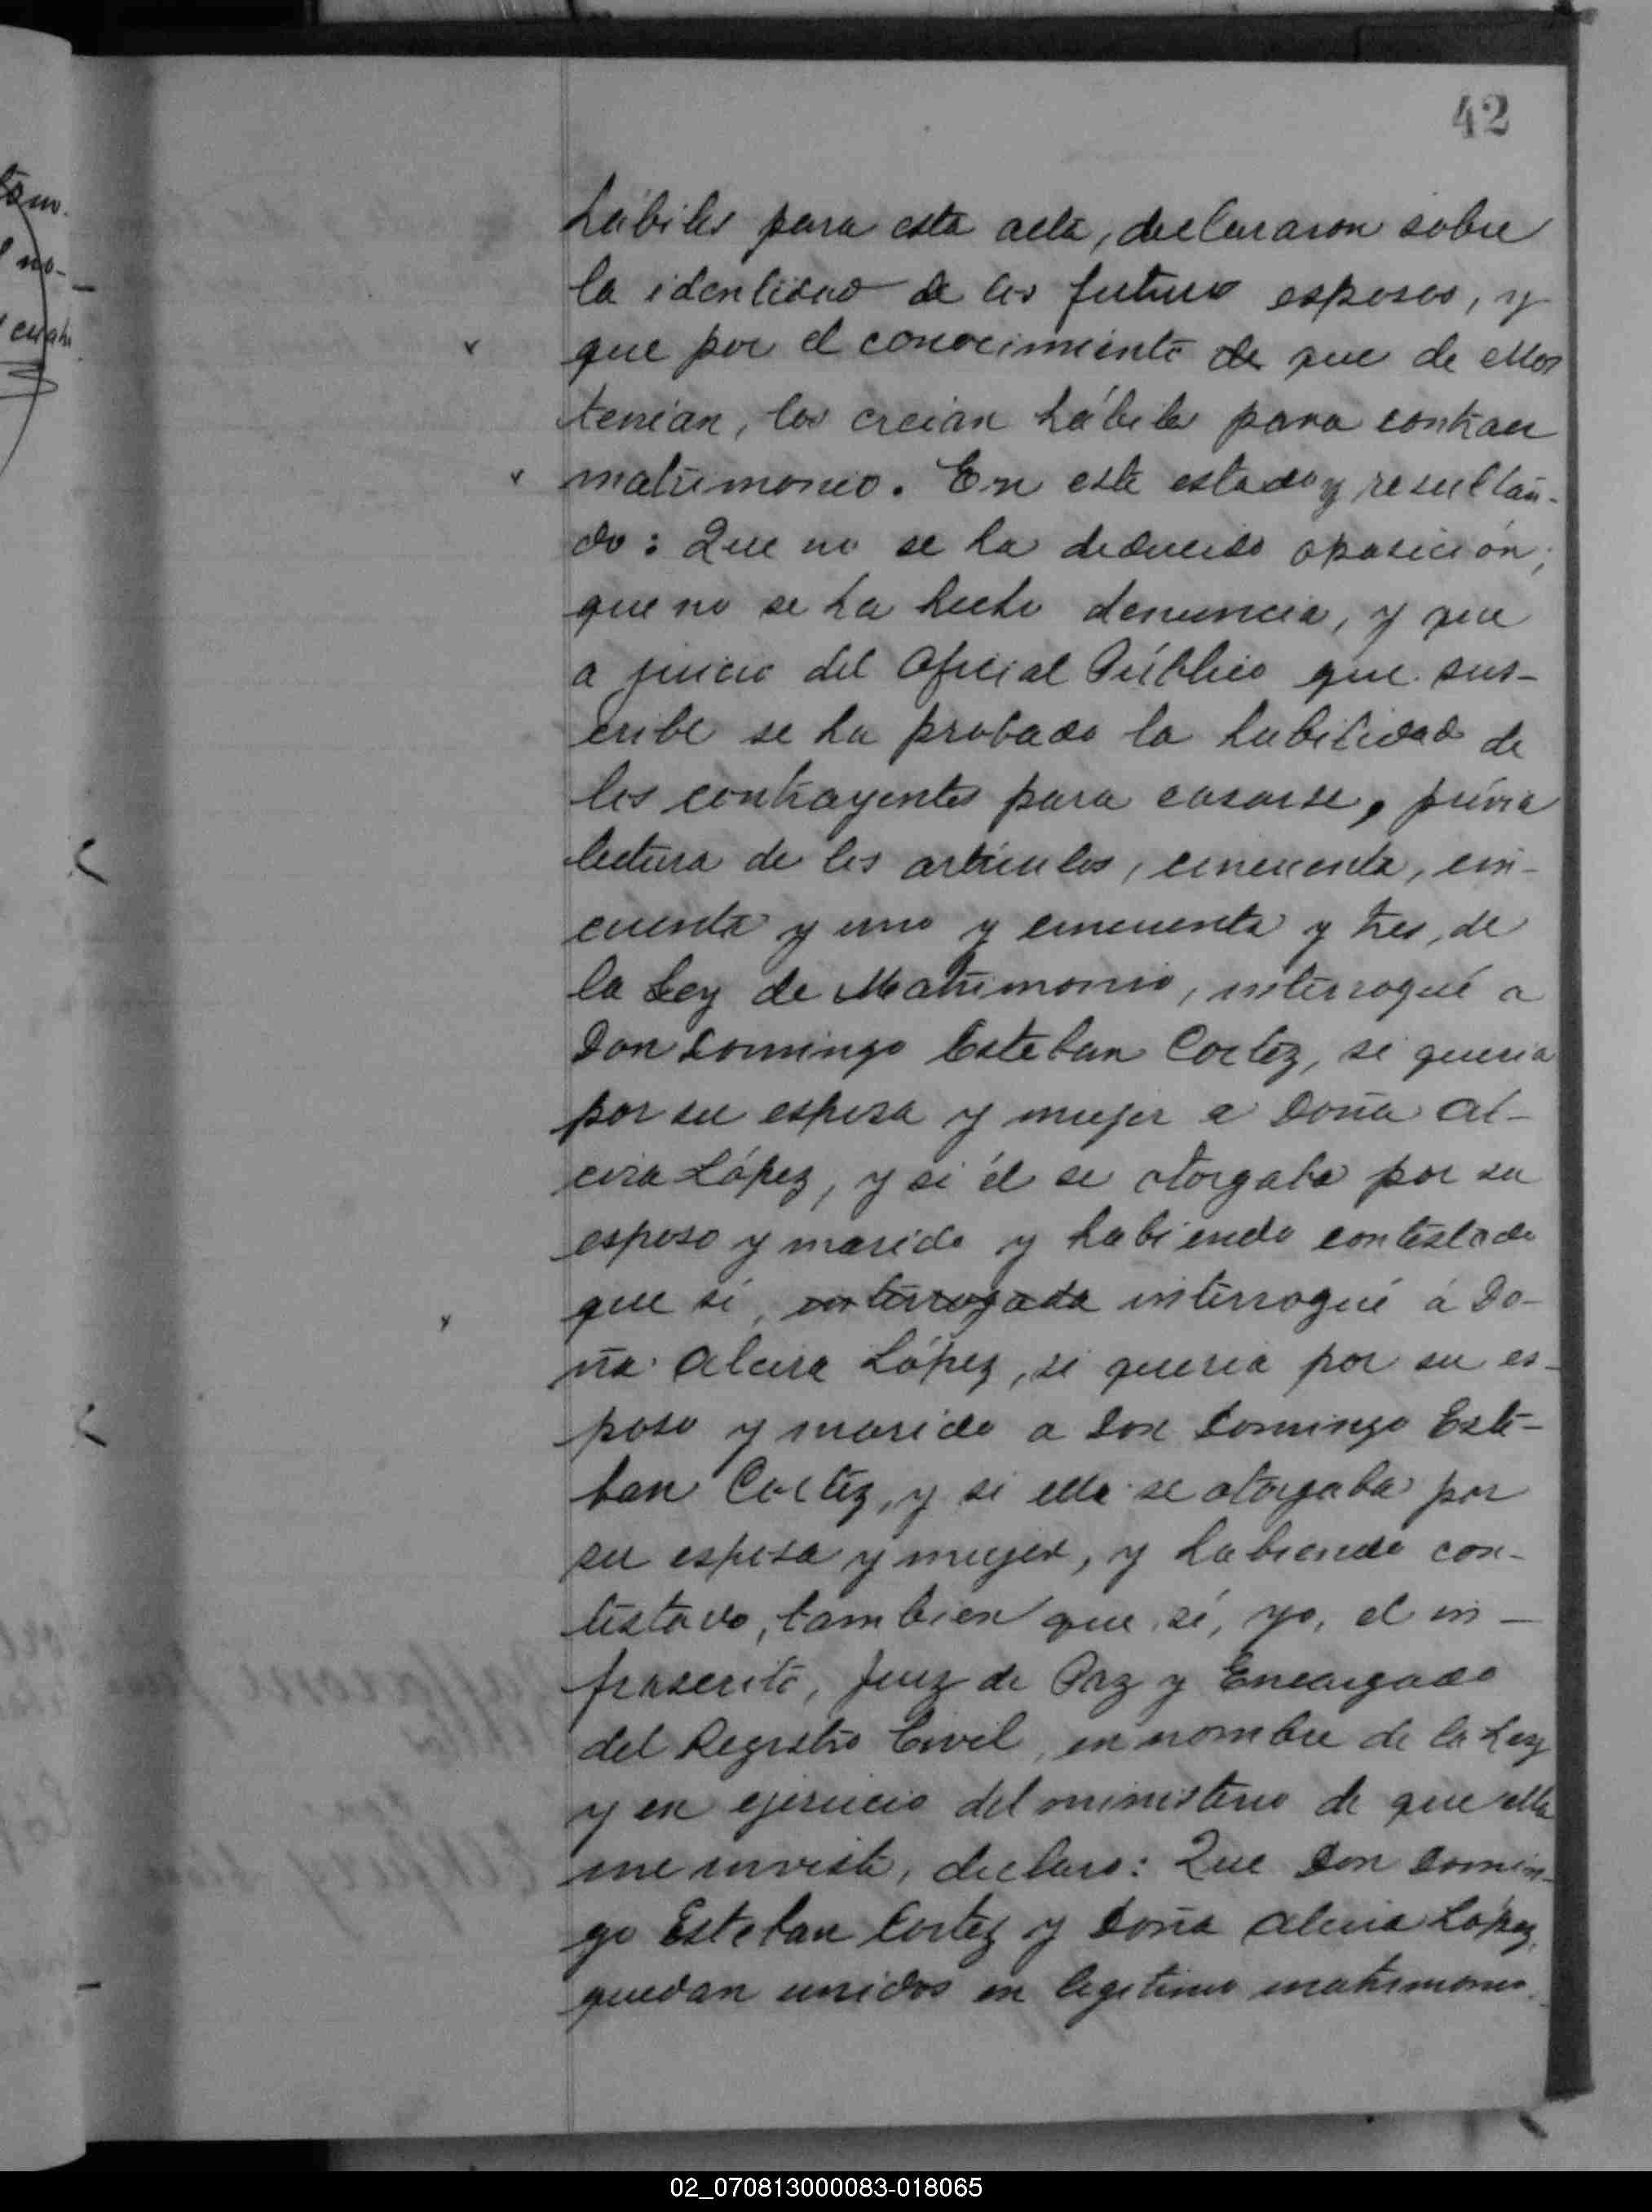 42
hábiles para esta acta, declararon sobre
la identidad de los futuros esposos, y
que por el conocimiento de que de ellos
tenían, los creían hábiles para contraer
matrimonio. En este estado y resultan-
do: Que no se ha deducido oposición;
que no se ha hecho denuncia, y que
a juicio del Oficial Público que sus-
cribe se ha probado la habilidad de
los contrayentes para casarse, prévia
lectura de los artículos, cincuenta, cin-
cuenta y uno y cincuenta y tres, de
la Ley de Matrimonio, interrogué a
Don Domingo Esteban Cortez, si quería
por su esposa y mujer a Doña Al-
cira López, y si él se otorgaba por su
esposo y marido y habiendo contestado
que sí, interrogada interrogué á Do-
ña Alcira López, si quería por su es-
poso y marido a Don Domingo Este-
ban Cortez, y si ella se otorgaba por
su esposa y mujer, y habiendo con-
testado, tambien que sí, yo, el in-
frascrito, Juez de Paz y Encargado
del Registro Civil, en nombre de la Ley
y en ejercicio del ministerio de que ella
me inviste, declaro: Que Don Domin-
go Esteban Cortez y Doña Alcira López,
quedan unidos en legítimo matrimonio.
02_070813000083-018065